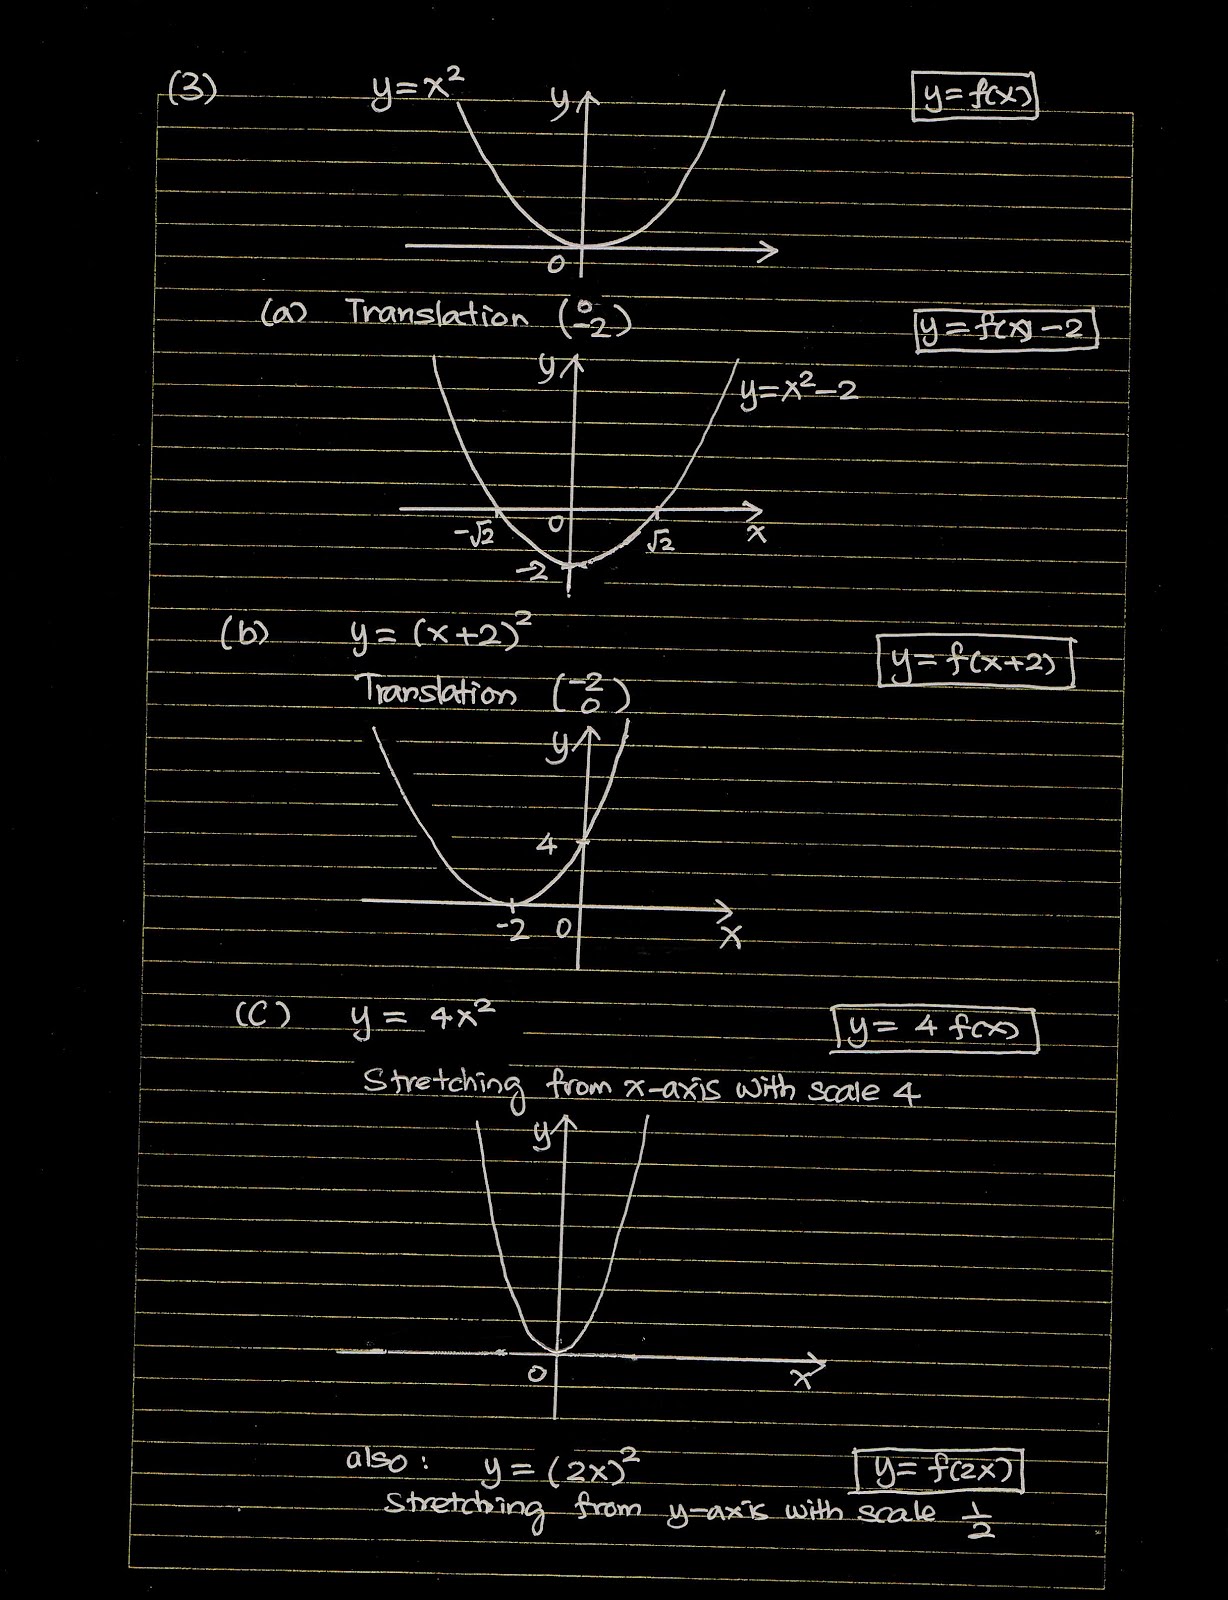 (3) y=x² y y=f(x)
0
(a) Translation (0 -2) y=f(x)-2
y y=x²-2
-√2 0 √2 x
-2
(b) y=(x+2)² y=f(x+2)
Translation (-2 0)
y
4
-2 0 x
(c) y = 4x² y= 4 f(x)
Stretching from x-axis with scale 4
y
0 x
also: y=(2x)² y= f(2x)
Stretching from y-axis with scale 1/2